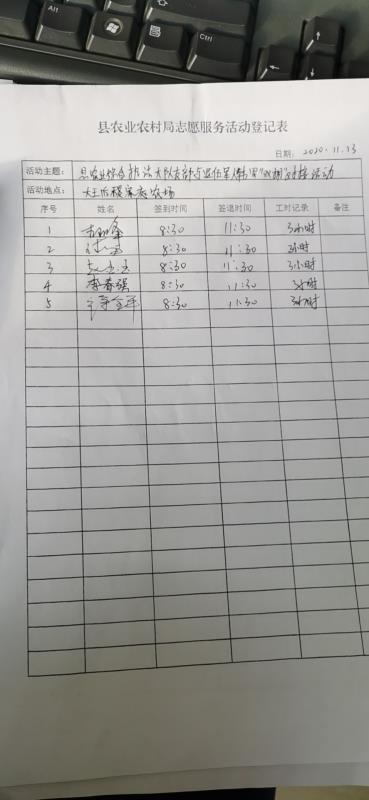 Alt
Ctrl
县农业农村局志愿服务活动登记表
日期： 2020.11.13
活动主题： 县农业综合执法大队支部与
活动地点： 农场
序号 姓名 签到时间 签退时间 工时记录 备注
1 8:30 11:30 3小时
2 8:30 11:30 3小时
3 8:30 11:30 3小时
4 李春强 8:30 11:30 3小时
5 8:30 11:30 3小时